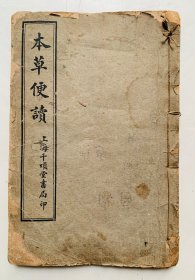 本草便讀
上海千頃堂書局印